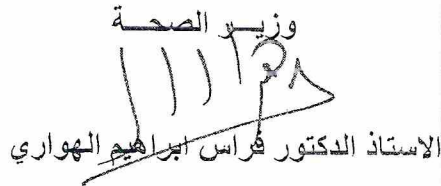 وزيـر الصحـــة
الاستاذ الدكتور فراس ابراهيم الهواري